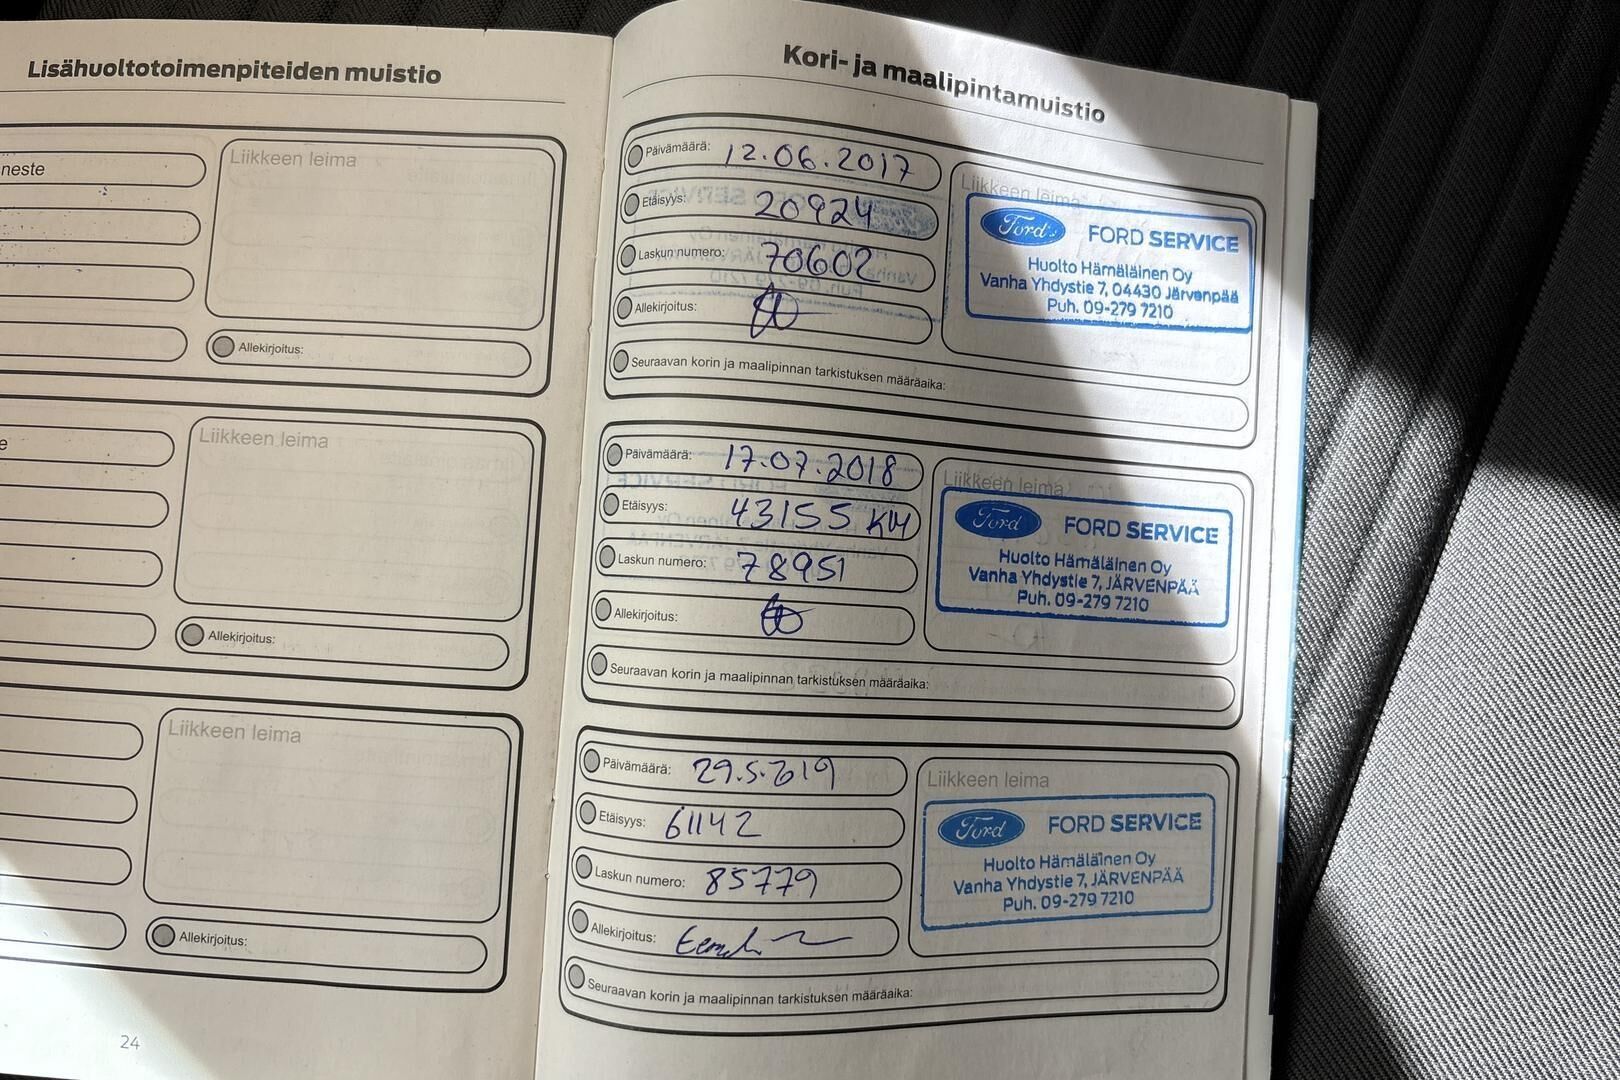 Lisähuoltotoimenpiteiden muistio
neste
Liikkeen leima
Allekirjoitus:
e
Liikkeen leima
Allekirjoitus:
Liikkeen leima
Allekirjoitus:
24
Kori- ja maalipintamuistio
Päivämäärä: 12.06.2017
Etäisyys: 20924
Laskun numero: 70602
Allekirjoitus:
Liikkeen leima
Ford FORD SERVICE
Huolto Hämäläinen Oy
Vanha Yhdystie 7, 04430 Järvenpää
Puh. 09-279 7210
Seuraavan korin ja maalipinnan tarkistuksen määräaika:
Päivämäärä: 17.07.2018
Etäisyys: 43155 KM
Laskun numero: 78951
Allekirjoitus:
Liikkeen leima
Ford FORD SERVICE
Huolto Hämäläinen Oy
Vanha Yhdystie 7, JÄRVENPÄÄ
Puh. 09-279 7210
Seuraavan korin ja maalipinnan tarkistuksen määräaika:
Päivämäärä: 29.5.2019
Etäisyys: 61142
Laskun numero: 85779
Allekirjoitus:
Liikkeen leima
Ford FORD SERVICE
Huolto Hämäläinen Oy
Vanha Yhdystie 7, JÄRVENPÄÄ
Puh. 09-279 7210
Seuraavan korin ja maalipinnan tarkistuksen määräaika: